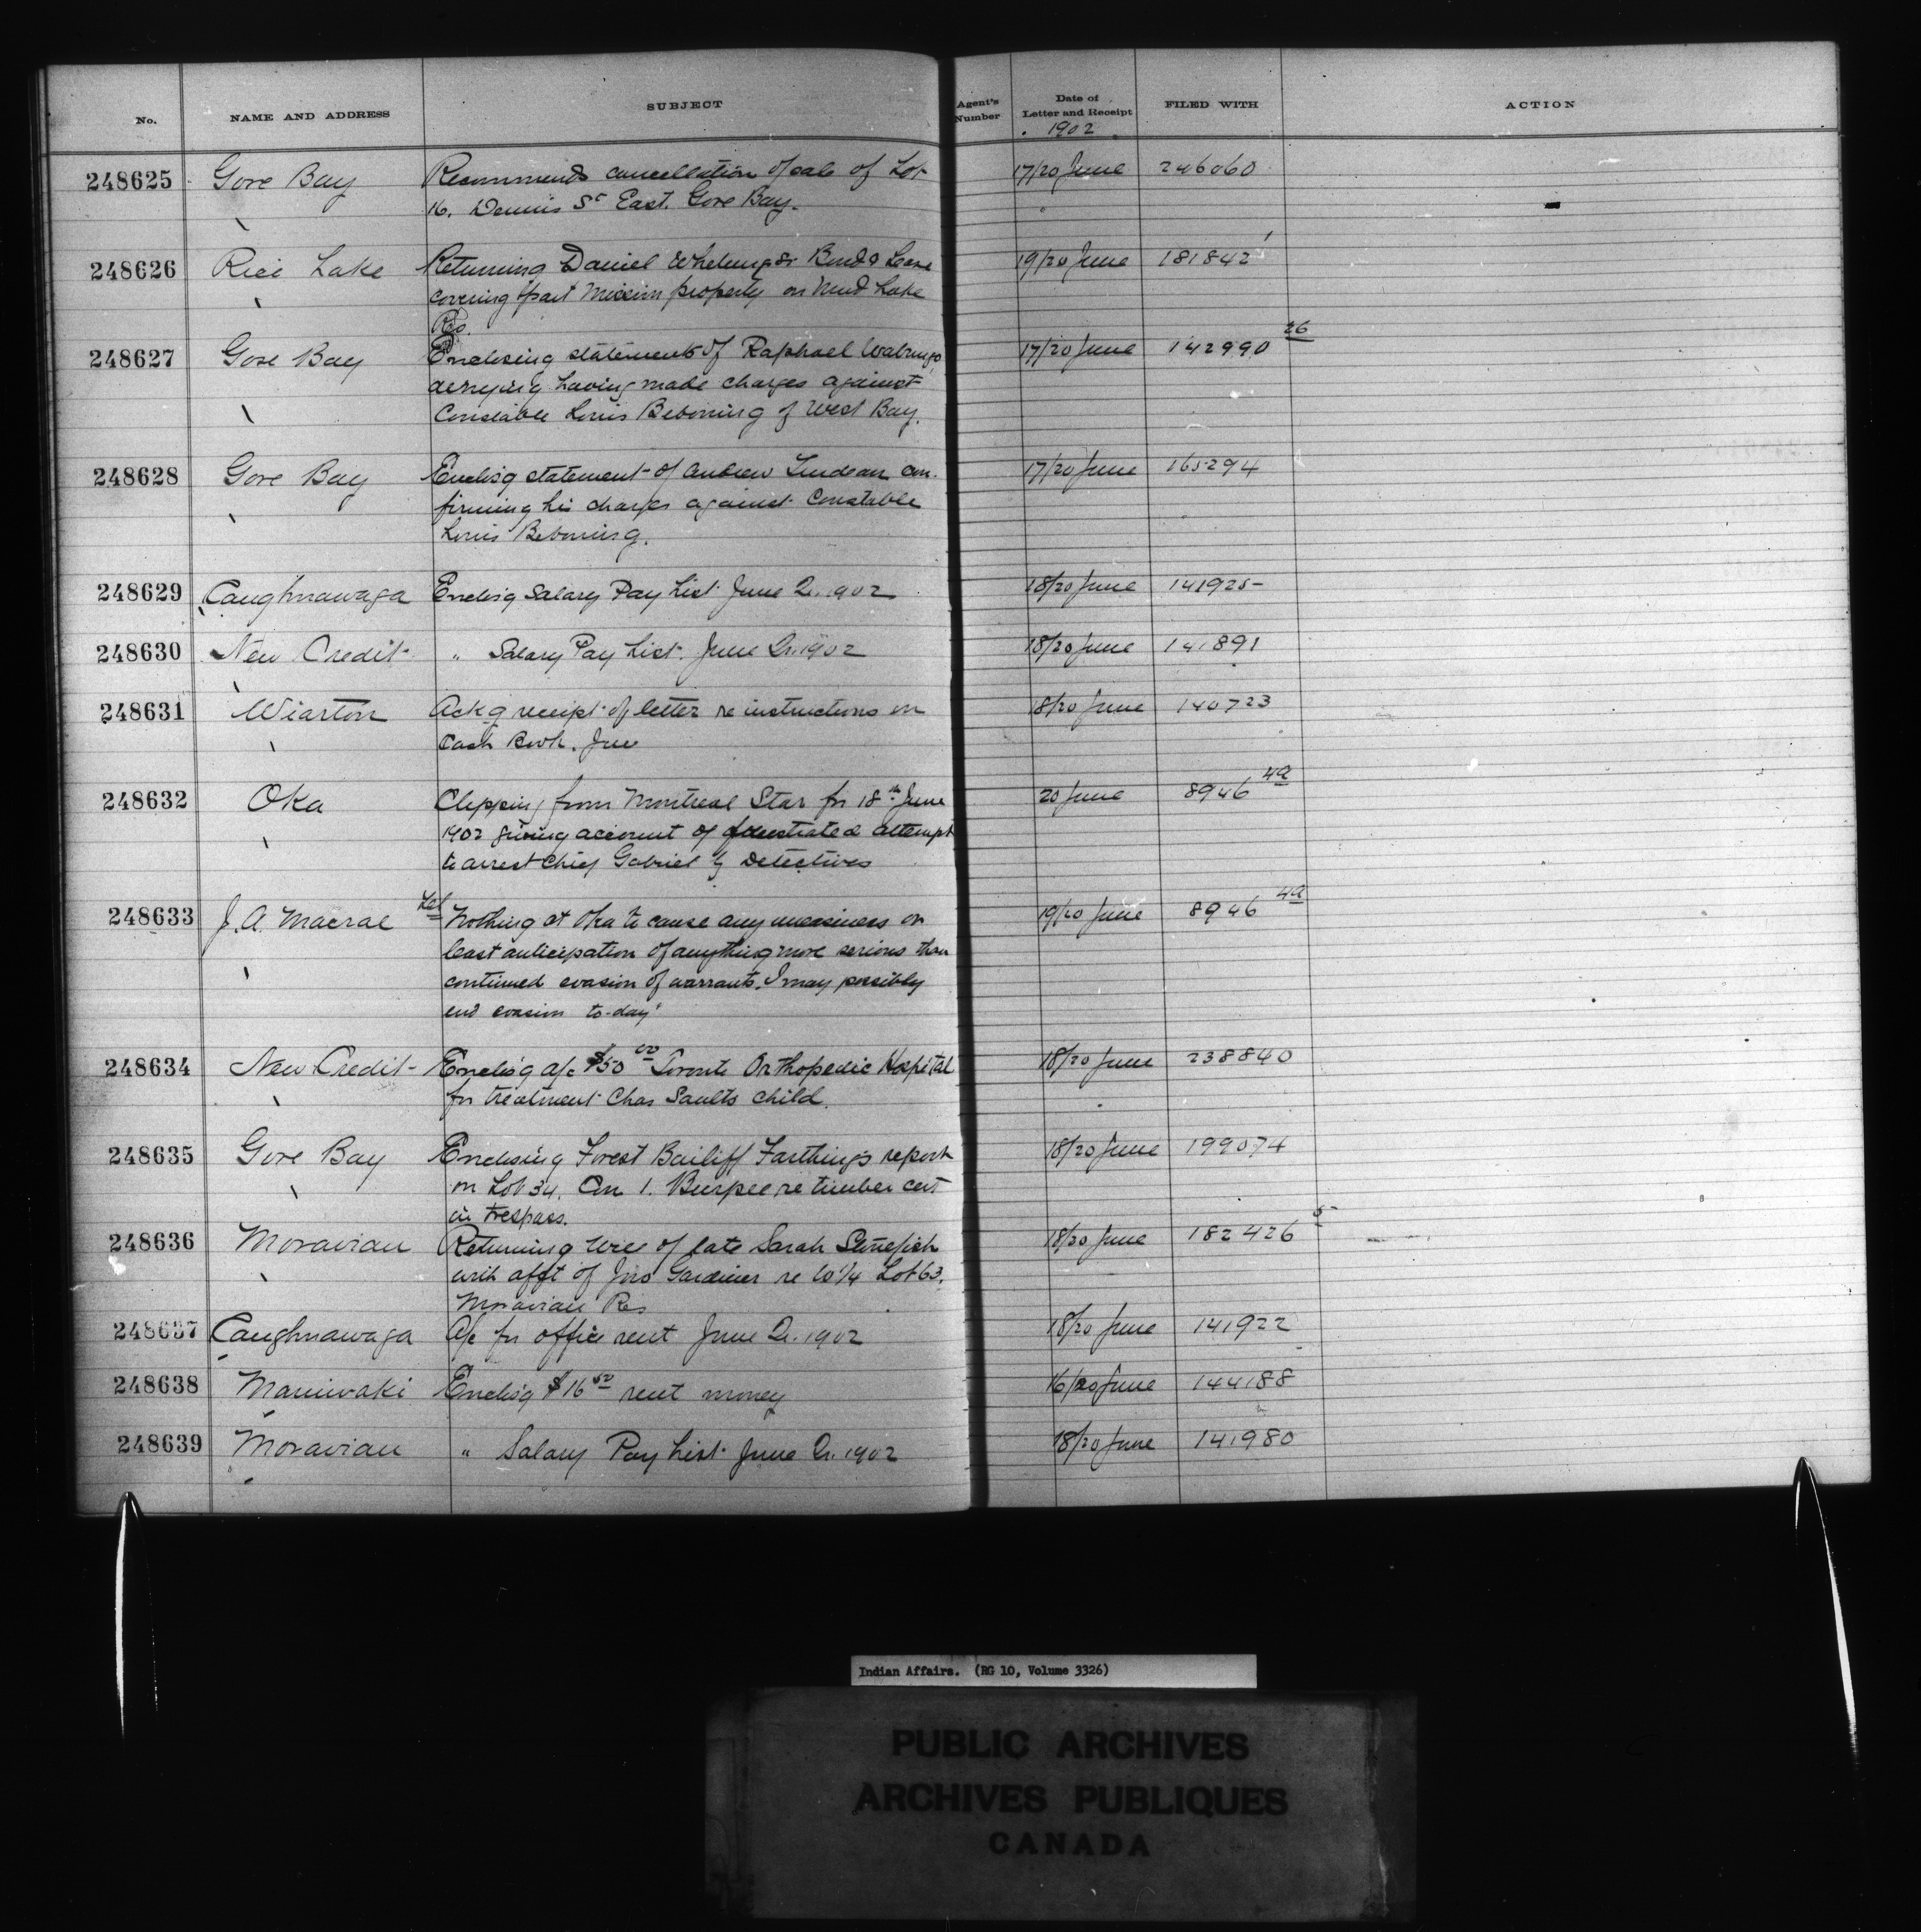 No. NAME AND ADDRESS SUBJECT Agent's Number Date of Letter and Receipt FILED WITH ACTION
1902
248625 Gore Bay Recommends cancellation of sale of Lot 17/20 June 246060
16. Dennis St East. Gore Bay.
248626 Rice Lake Returning Daniel Bond & Lease 19/20 June 181842 1
covering part Mission property on Mud Lake
Res.
248627 Gore Bay Enclosing statement of Raphael 17/20 June 142990 26
denying having made charges against
Constable Louis Beboning of West Bay.
248628 Gore Bay Enclos'g statement of Andrew con- 17/20 June 165294
firming his charges against Constable
Louis Beboning.
248629 Caughnawaga Enclos'g Salary Pay List June Qr. 1902 18/20 June 141925
248630 New Credit " Salary Pay List. June Qr. 1902 18/20 June 141891
248631 Wiarton Ackg receipt of letter re instructions on 18/20 June 140723
Cash Book.
248632 Oka Clipping from Montreal Star for 18th June 20 June 8946 4a
1902 giving account of frustrated attempt
to arrest Chief Gabriel by Detectives
248633 J. A. Macrae Tel Nothing at Oka to cause any uneasiness or 19/20 June 8946 4a
least anticipation of anything more serious than
continued evasion of warrants. I may possibly
end evasion to-day"
248634 New Credit Enclos'g a/c $50 00 Toronto Orthopedic Hospital 18/20 June 238840
for treatment Chas Saults child.
248635 Gore Bay Enclosing Forest Bailiff Farthing's report 18/20 June 199074
on Lot 34. Con 1. Burpee re timber cut
in trespass.
248636 Moravian Returning Will of late Sarah Stonefish 18/20 June 182426 5
with afft of Jno Gardiner re W 1/4 Lot 63.
Moravian Res
248637 Caughnawaga A/c for office rent June Qr. 1902 18/20 June 141922
248638 Maniwaki Enclos'g $16 50 rent money 16/20 June 144188
248639 Moravian " Salary Pay List June Qr. 1902 18/20 June 141980
Indian Affairs. (RG 10, Volume 3326)
PUBLIC ARCHIVES
ARCHIVES PUBLIQUES
CANADA